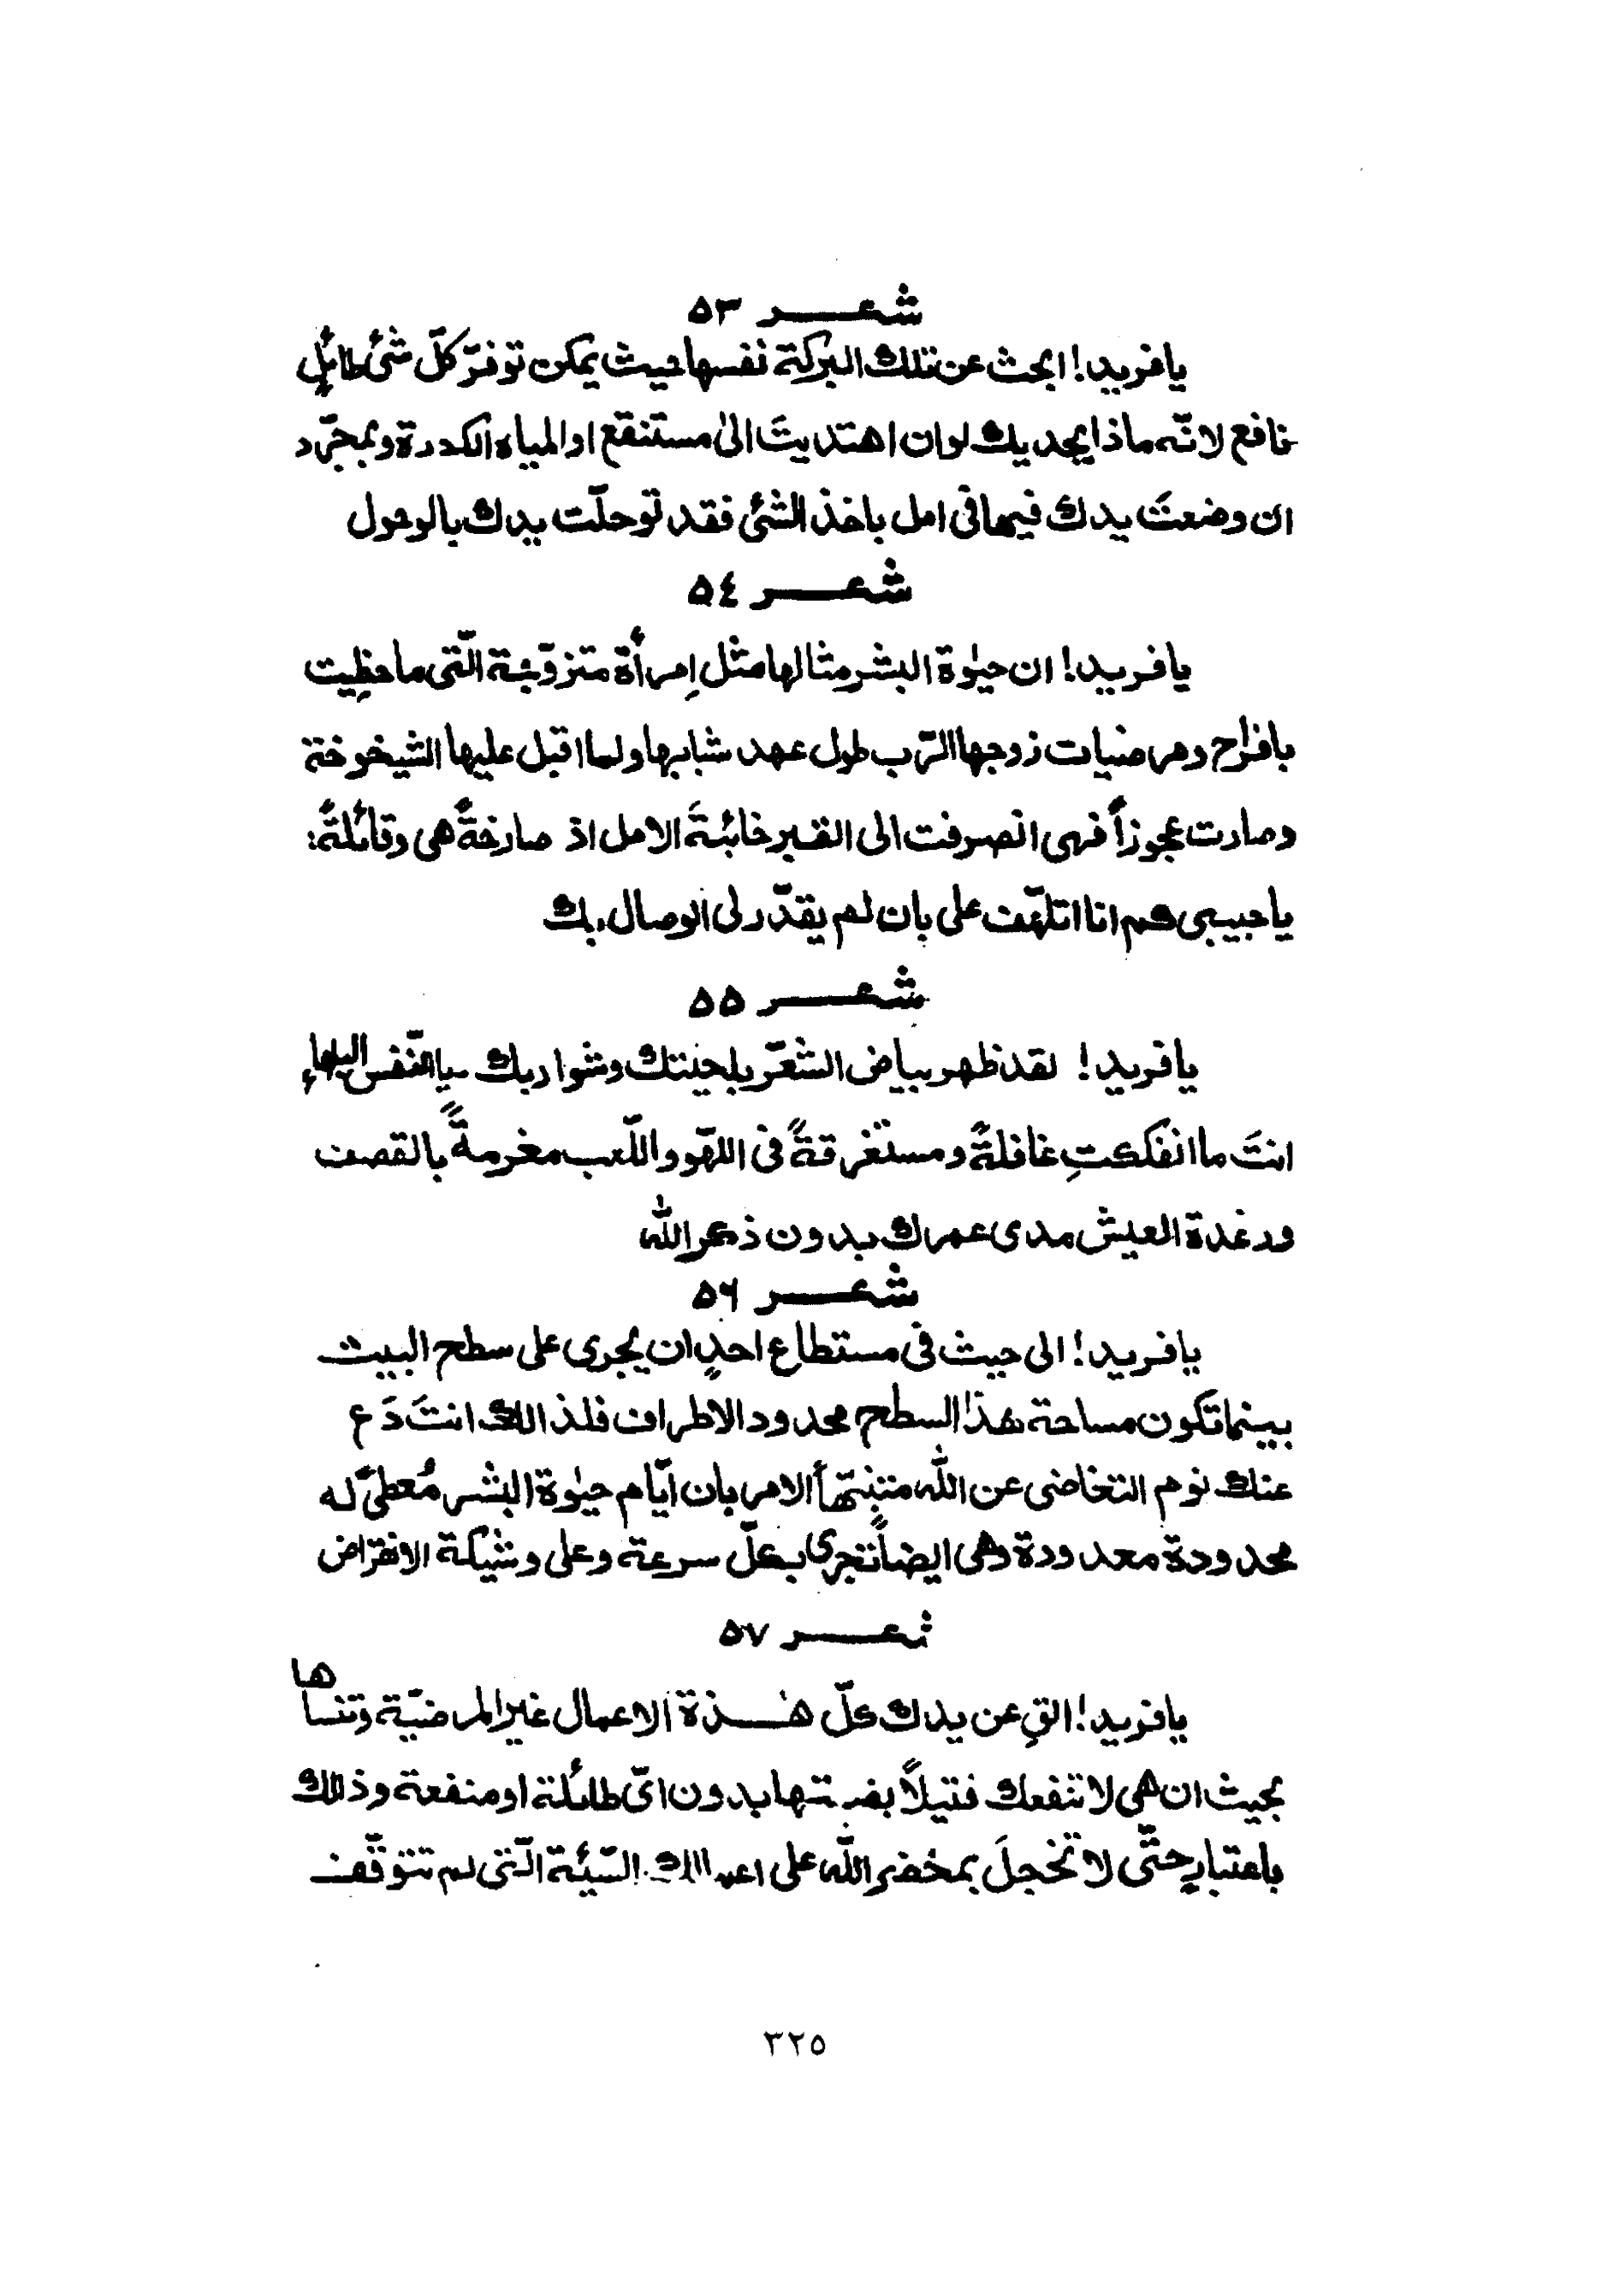 شعر ٥٣
يا فريد! ابحث عن تلك البركة نفسها حيث يمكن توفّر كلّ شئ طائلٍ
نافع لانّه ماذا يجديك لو ان اهتديتَ الىٰ مستنقع او المياه الكدرة وبمجرّد
ان وضعتَ يدك فيها فى امل باخذ الشئ فقد توحلّت يدك بالوحول
شعر ٥٤
يا فريد! ان حيٰوة البشر مثالها مثل إمرأة متزوّجة الّتى ما حظِيت
بافراح ومرضيات زوجها الرّب طول عهد شبابها ولما اقبل عليها الشيخوخة
وصارت عجوزاً فهى انصرفت الى القبر خائبةَ الامل اذ صارخةً هى وقائلةً:
يا حبيبى كم انا اتلهّف على بان لم يقدّر لى الوصال بك
شعر ٥٥
يا فريد! لقد ظهر بياض الشعّر بلحيتك وشواربك يا النّفس البلهاءِ
انتَ ما انفكتِ غافلةً ومستغرقةً فى اللّهو واللّعب مغرمةً بالقصف
ورغدة العيش مدى عمرك بدون ذكر الله
شعر ٥٦
يا فريد! الى حيث فى مستطاع احدٍ ان يجرى على سطح البيت
بينما تكون مساحة هذا السطح محدود الاطراف فلذالك انتَ دَع
عنك نوم التغاضى عن الله متنبّهاً الامر بان ايّام حيٰوة البشر مُعطىً له
محدودة معدودة وهى ايضاً تجرى بكلّ سرعة وعلى وشيكة الانقراض
شعر ٥٧
يا فريد! القِ عن يدك كلّ هٰذة الاعمال غير المرضيّة وتنساها
بحيث ان هى لا تنفعك فتيلاً بدون اىّ طائلة او منفعة وذالك
باعتبارٍ حتّى لا تخجلَ بمحضر الله على السّيئة الّتى لم تتوقّف
٣٢٥